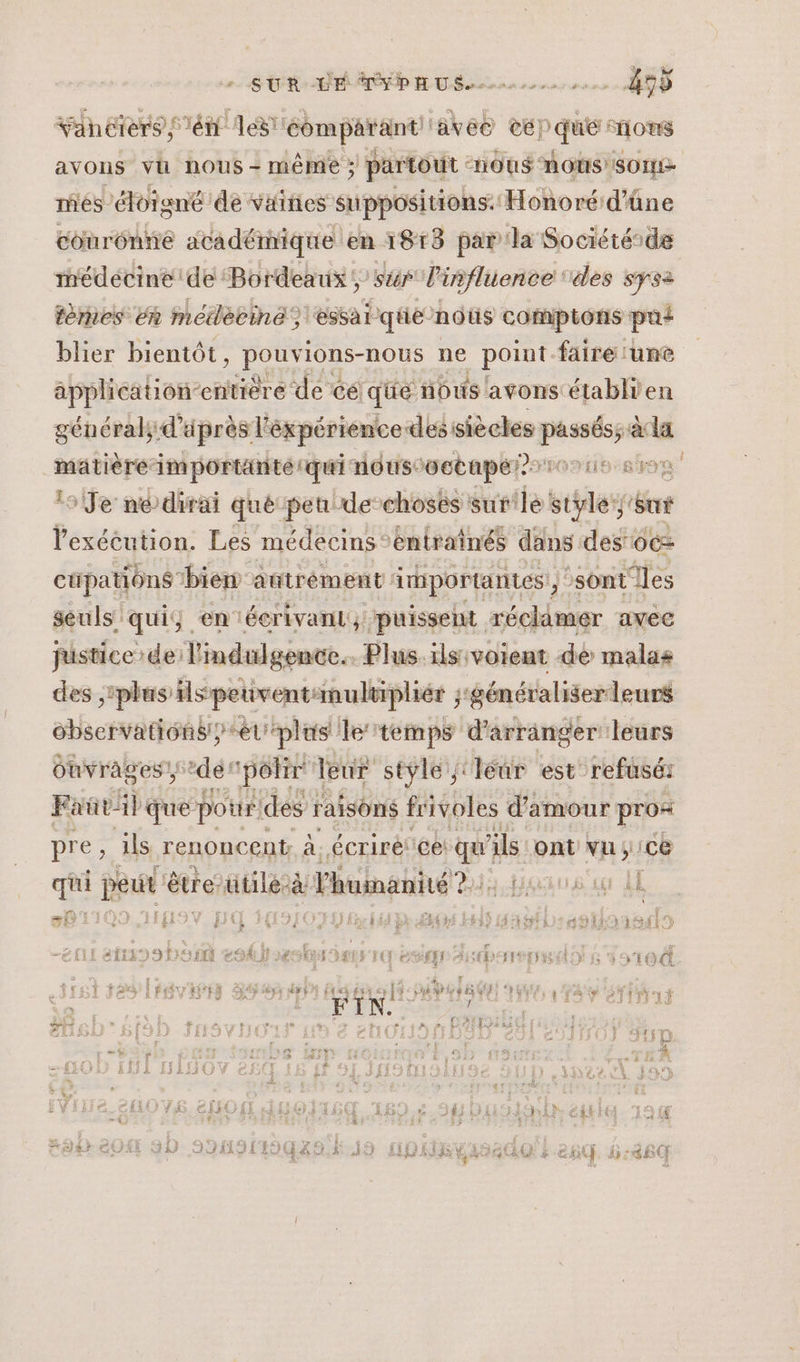 SUR LE TYPHUS. 495
vanciers, en les comparant avec ce que nous
avons vu nous-même ; partout nous nous som-
mes éloigné de vaines suppositions. Honoré d'une
couronne académique en 1813 par la Société de
médecine de Bordeaux, sur l'influence des sys-
tèmes en médecine, essai que nous comptons pu-
blier bientôt, pouvions-nous ne point faire une
application entière de ce que nous avons établi en
général, d'après l'expérience des siècles passés, à la
matière importante qui nous occupe?
Je ne dirai que peu de choses sur le style, sur
l'exécution. Les médecins entraînés dans des oc-
cupations bien autrement importantes, sont les
seuls qui, en écrivant, puissent réclamer avec
justice de l'indulgence. Plus ils voient de mala-
des, plus ils peuvent multiplier, généraliser leurs
observations, et plus le temps d'arranger leurs
ouvrages, de polir leur style, leur est refusé.
Faut-il que pour des raisons frivoles d'amour pro-
pre, ils renoncent à écrire ce qu'ils ont vu, ce
qui peut être utile à l'humanité?
FIN.